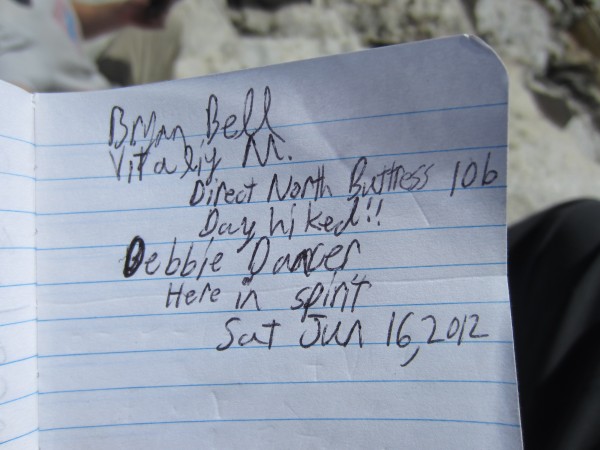 Bryan Bell
Vitaliy M.
Direct North Buttress 10b
Day hiked!!
Debbie Dancer
Here in spirit
Sat Jun 16, 2012